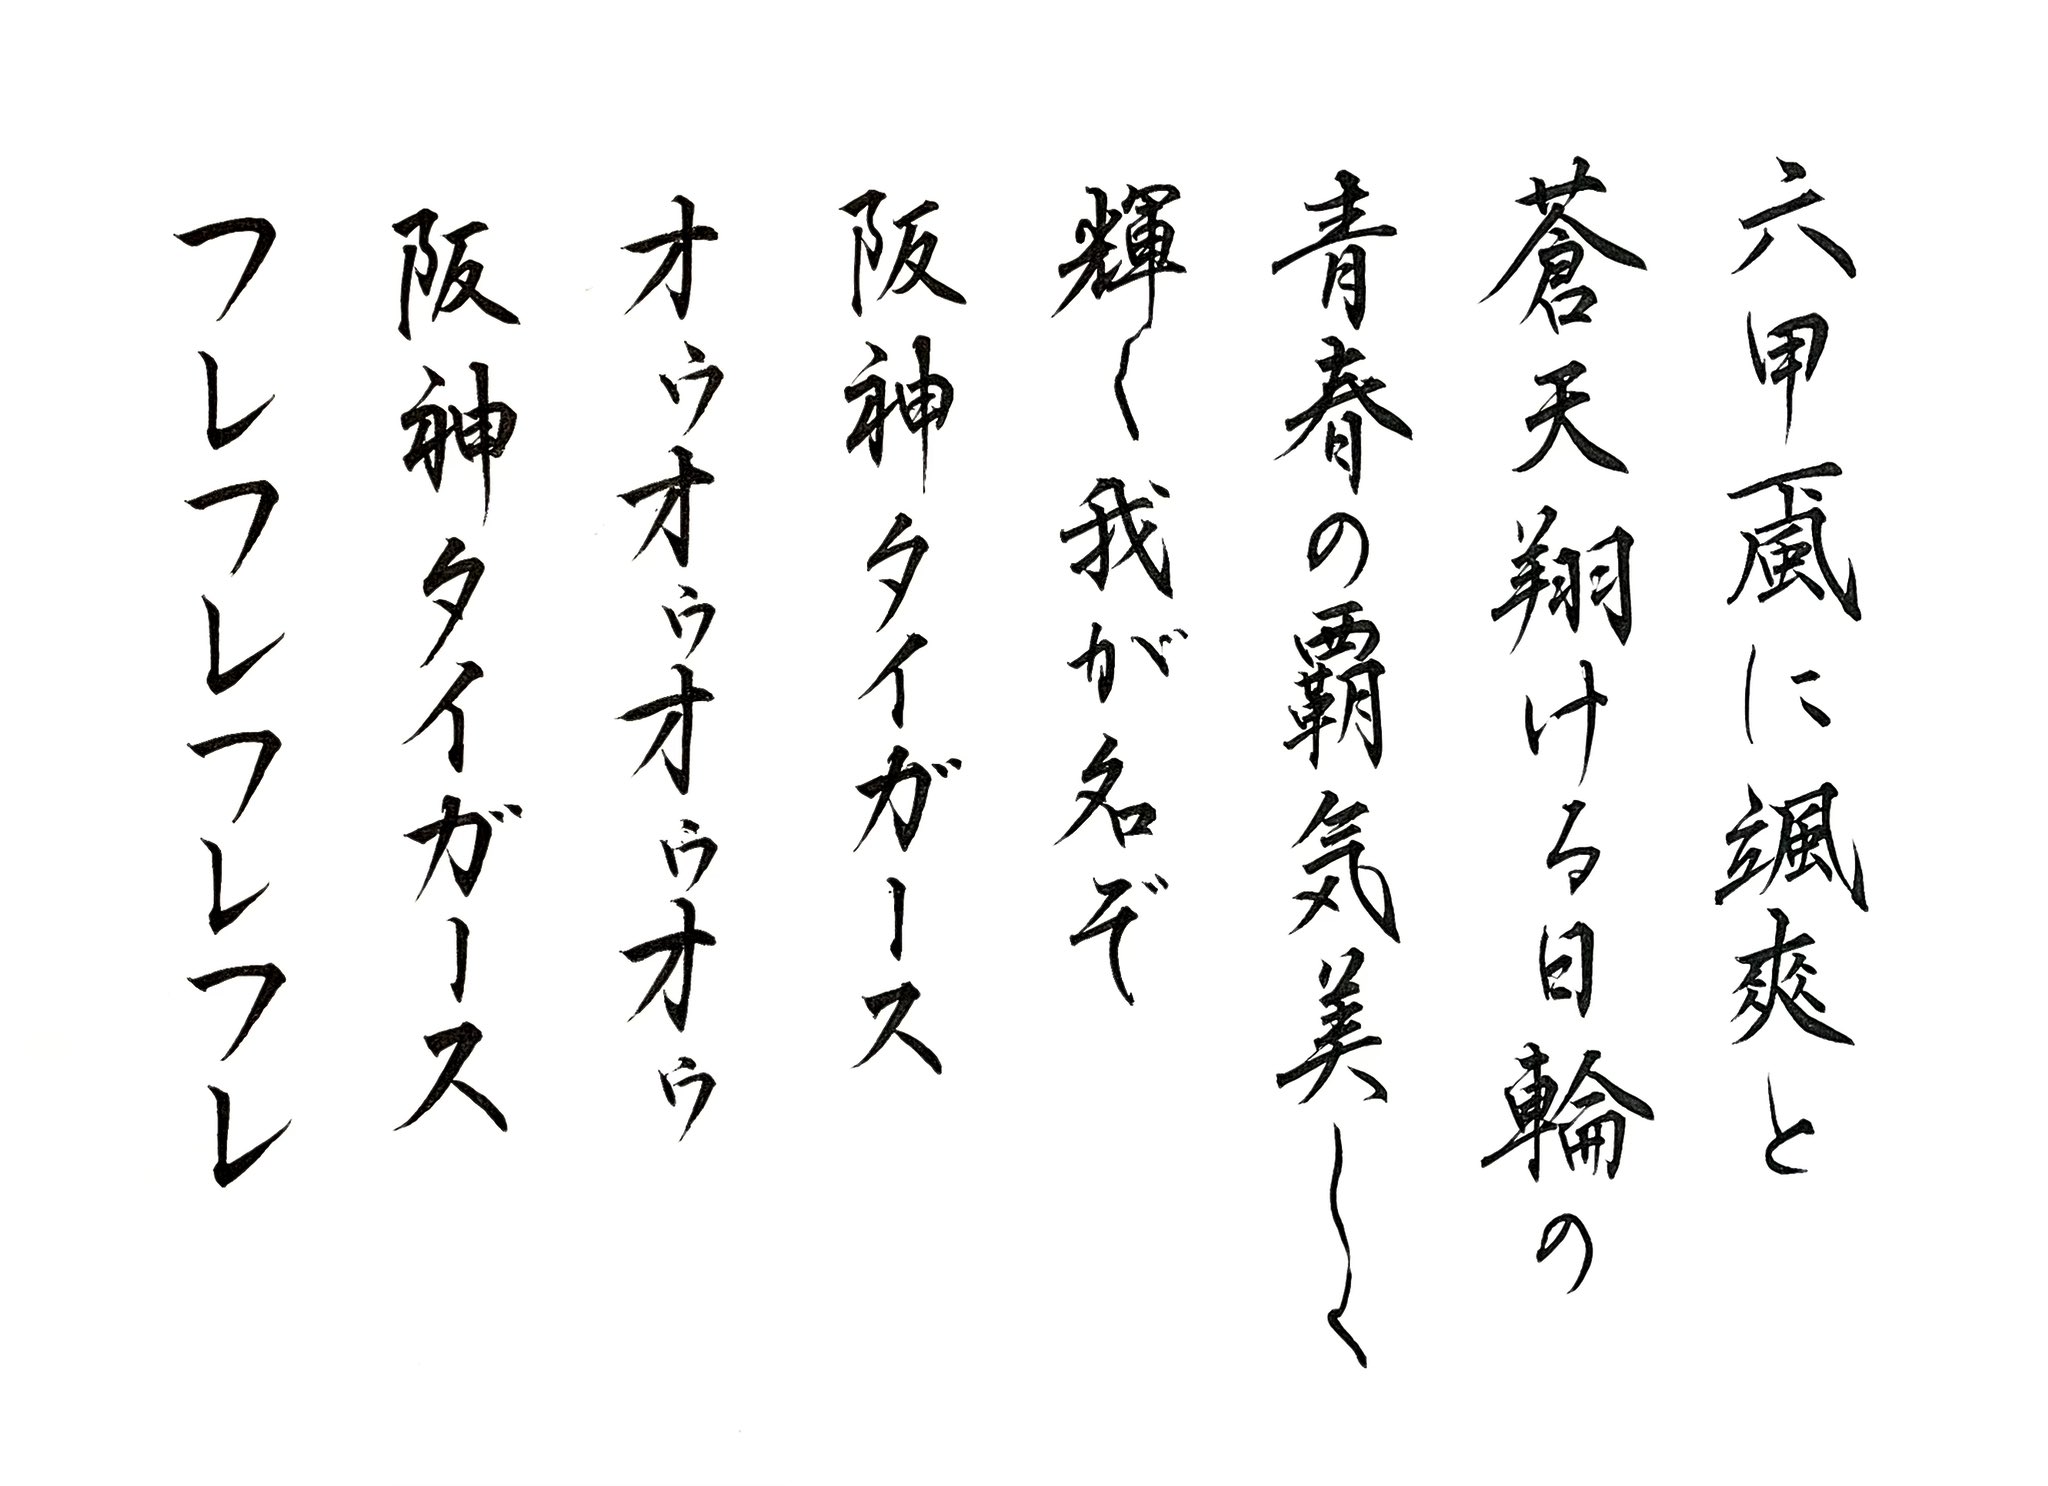 六甲颪に颯爽と
蒼天翔ける日輪の
青春の覇気美しく
輝く我が名ぞ
阪神タイガース
オゥオゥオゥオゥ
阪神タイガース
フレフレフレフレ